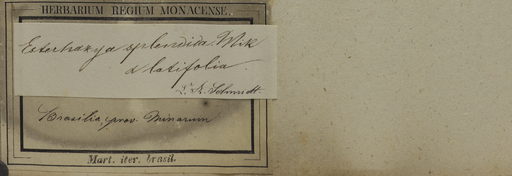 HERBARIUM REGIUM MONACENSE.
Esterhazya splendida Mik
α latifolia.
Schmidt.
Brasilia, prov. Minarum
Mart. iter. brasil.